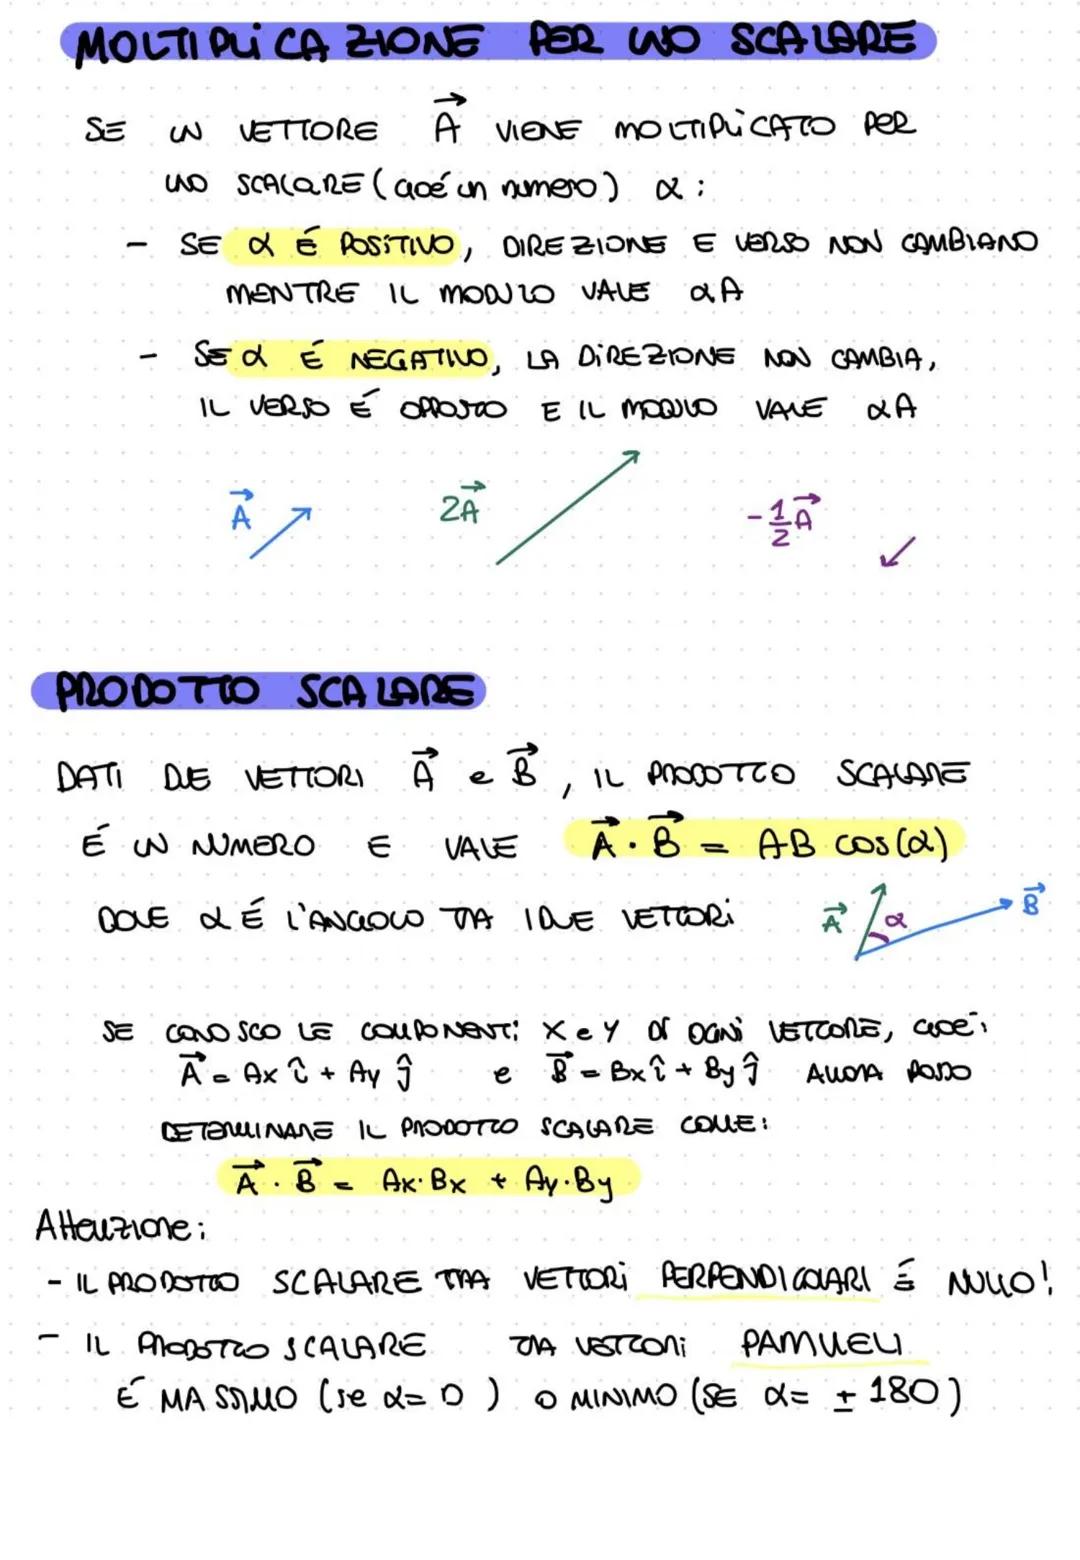 MOLTIPLICAZIONE PER UNO SCALARE
SE UN VETTORE A⃗ VIENE MOLTIPLICATO PER
UNO SCALARE (cioé un numero) α:
- SE α É POSITIVO, DIREZIONE E VERSO NON CAMBIANO
MENTRE IL MODULO VALE αA
- SE α É NEGATIVO, LA DIREZIONE NON CAMBIA,
IL VERSO É OPPOSTO E IL MODULO VALE αA
A⃗ 2A⃗ -1/2 A⃗
PRODOTTO SCALARE
DATI DUE VETTORI A⃗ e B⃗, IL PRODOTTO SCALARE
É UN NUMERO E VALE A⃗ · B⃗ = AB cos(α)
DOVE α É L'ANGOLO TRA I DUE VETTORI
A⃗ α B⃗
SE CONOSCO LE COMPONENTI X e Y DI OGNI VETTORE, CIOÉ:
A⃗ = Ax î + Ay ĵ e B⃗ = Bx î + By ĵ ALLORA POSSO
DETERMINARE IL PRODOTTO SCALARE COME:
A⃗ · B⃗ = Ax·Bx + Ay·By
Attenzione:
- IL PRODOTTO SCALARE TRA VETTORI PERPENDICOLARI É NULLO!
- IL PRODOTTO SCALARE TRA VETTORI PARALLELI
É MASSIMO (se α= 0) O MINIMO (SE α= ±180)